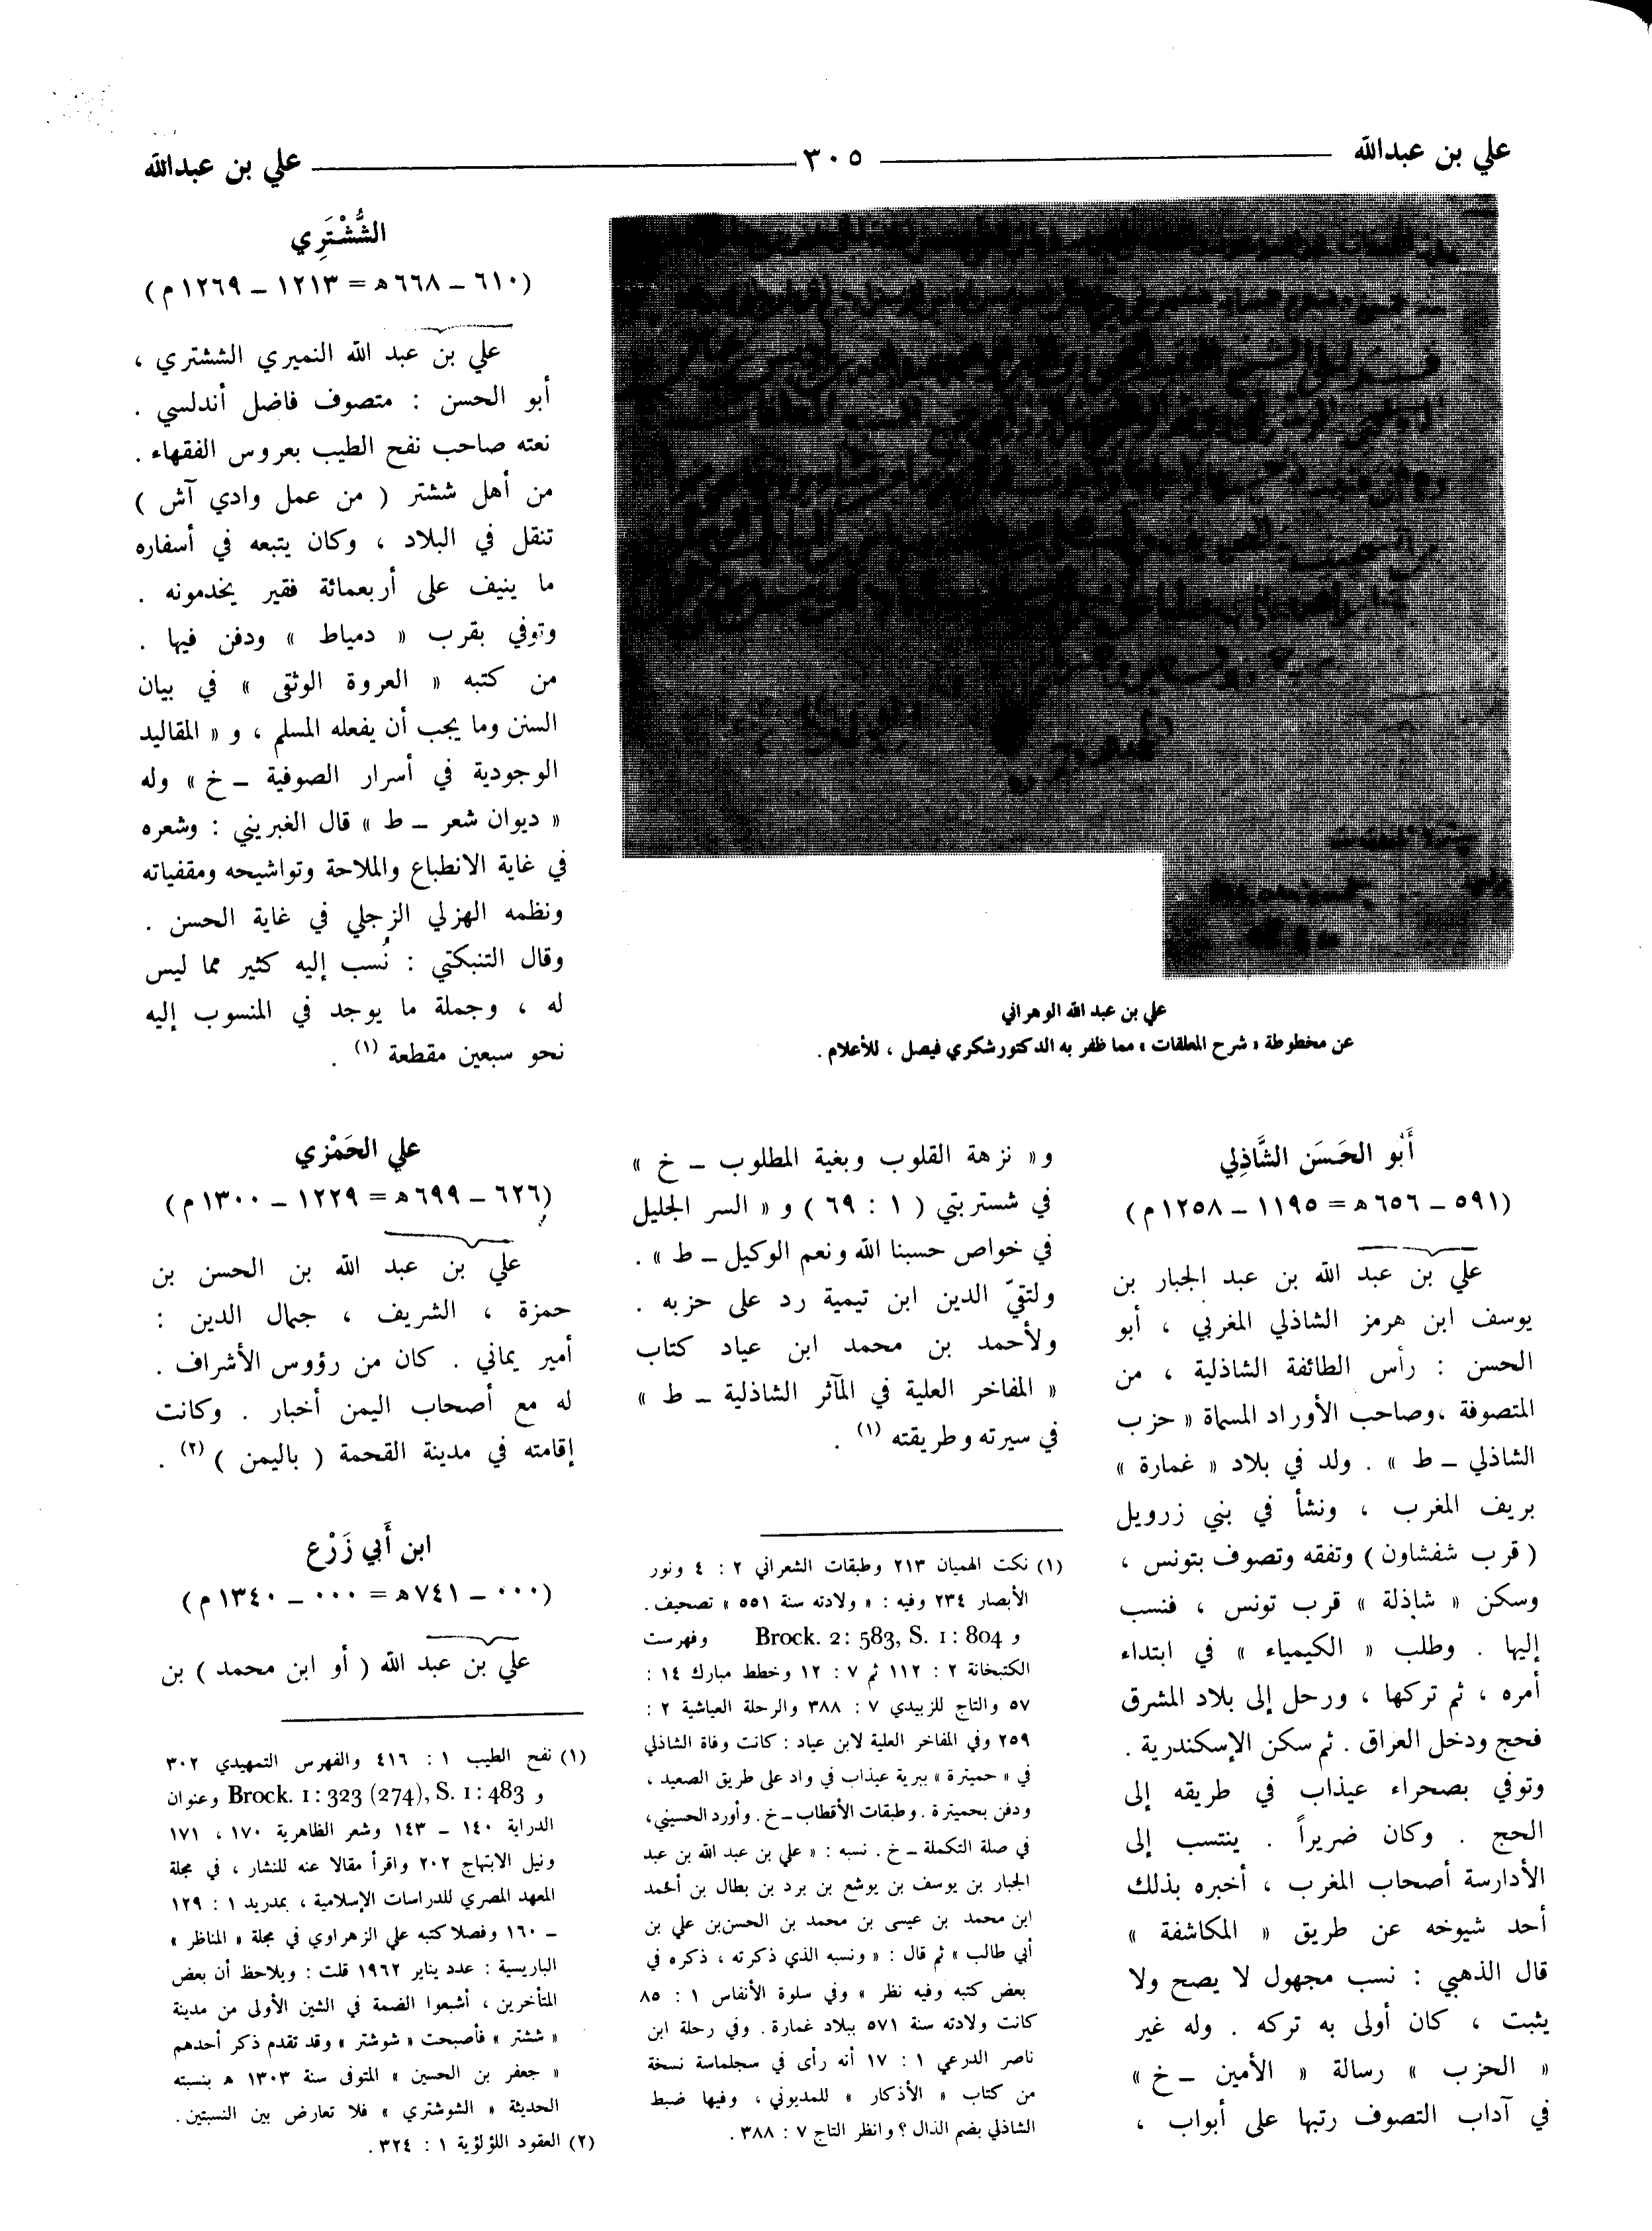 علي بن عبدالله
٣٠٥
علي بن عبدالله
علي بن عبد الله الوهراني
عن مخطوطة « شرح المعلقات » مما ظفر به الدكتور شكري فيصل ، للأعلام .
أَبُو الحَسَن الشَّاذِلي
(٥٩١ ــ ٦٥٦ هـ = ١١٩٥ ــ ١٢٥٨ م)
علي بن عبد الله بن عبد الجبار بن
يوسف ابن هرمز الشاذلي المغربي ، أبو
الحسن : رأس الطائفة الشاذلية ، من
المتصوفة ،وصاحب الأوراد المسماة « حزب
الشاذلي ــ ط » . ولد في بلاد « غمارة »
بريف المغرب ، ونشأ في بني زرويل
( قرب شفشاون ) وتفقه وتصوف بتونس ،
وسكن « شاذلة » قرب تونس ، فنسب
إليها . وطلب « الكيمياء » في ابتداء
أمره ، ثم تركها ، ورحل إلى بلاد المشرق
فحج ودخل العراق . ثم سكن الإسكندرية .
وتوفي بصحراء عيذاب في طريقه إلى
الحج . وكان ضريراً . ينتسب إلى
الأدارسة أصحاب المغرب ، أخبره بذلك
أحد شيوخه عن طريق « المكاشفة »
قال الذهبي : نسب مجهول لا يصح ولا
يثبت ، كان أولى به تركه . وله غير
« الحزب » رسالة « الأمين ــ خ »
في آداب التصوف رتبها على أبواب ،
و« نزهة القلوب وبغية المطلوب ــ خ »
في شستربتي ( ١ : ٦٩ ) و « السر الجليل
في خواص حسبنا الله ونعم الوكيل ــ ط » .
ولتقيّ الدين ابن تيمية رد على حزبه .
ولأحمد بن محمد ابن عياد كتاب
« المفاخر العلية في المآثر الشاذلية ــ ط »
في سيرته وطريقته (١) .
(١) نكت الهميان ٢١٣ وطبقات الشعراني ٢ : ٤ ونور
الأبصار ٢٣٤ وفيه : « ولادته سنة ٥٥١ » تصحيف .
و Brock. 2: 583, S. 1: 804 وفهرست
الكتبخانة ٢ : ١١٢ ثم ٧ : ١٢ وخطط مبارك ١٤ :
٥٧ والتاج للزبيدي ٧ : ٣٨٨ والرحلة العياشية ٢ :
٢٥٩ وفي المفاخر العلية لابن عياد : كانت وفاة الشاذلي
في « حميترة » ببرية عيذاب في واد على طريق الصعيد ،
ودفن بحميترة . وطبقات الأقطاب ــ خ . وأورد الحسيني،
في صلة التكملة ــ خ . نسبه : « علي بن عبد الله بن عبد
الجبار بن يوسف بن يوشع بن برد بن بطال بن أحمد
ابن محمد بن عيسى بن محمد بن الحسن بن علي بن
أبي طالب » ثم قال : « ونسبه الذي ذكرته ، ذكره في
بعض كتبه وفيه نظر » وفي سلوة الأنفاس ١ : ٨٥
كانت ولادته سنة ٥٧١ ببلاد غمارة . وفي رحلة ابن
ناصر الدرعي ١ : ١٧ أنه رأى في سجلماسة نسخة
من كتاب « الأذكار » للمديوني ، وفيها ضبط
الشاذلي بضم الذال ؟ وانظر التاج ٧ : ٣٨٨ .
الشُّشْتَرِي
(٦١٠ ــ ٦٦٨ هـ = ١٢١٣ ــ ١٢٦٩ م)
علي بن عبد الله النميري الششتري ،
أبو الحسن : متصوف فاضل أندلسي .
نعته صاحب نفح الطيب بعروس الفقهاء .
من أهل ششتر ( من عمل وادي آش )
تنقل في البلاد ، وكان يتبعه في أسفاره
ما ينيف على أربعمائة فقير يخدمونه .
وتوفي بقرب « دمياط » ودفن فيها .
من كتبه « العروة الوثقى » في بيان
السنن وما يجب أن يفعله المسلم ، و « المقاليد
الوجودية في أسرار الصوفية ــ خ » وله
« ديوان شعر ــ ط » قال الغبريني : وشعره
في غاية الانطباع والملاحة وتواشيحه ومقفياته
ونظمه الهزلي الزجلي في غاية الحسن .
وقال التنبكتي : نُسب إليه كثير مما ليس
له ، وجملة ما يوجد في المنسوب إليه
نحو سبعين مقطعة (١) .
علي الحَمْزي
(٦٢٦ ــ ٦٩٩ هـ = ١٢٢٩ ــ ١٣٠٠ م)
علي بن عبد الله بن الحسن بن
حمزة ، الشريف ، جمال الدين :
أمير يماني . كان من رؤوس الأشراف .
له مع أصحاب اليمن أخبار . وكانت
إقامته في مدينة القحمة ( باليمن ) (٢) .
ابن أَبي زَرْع
(٠٠٠ ــ ٧٤١ هـ = ٠٠٠ ــ ١٣٤٠ م)
علي بن عبد الله ( أو ابن محمد ) بن
(١) نفح الطيب ١ : ٤١٦ والفهرس التمهيدي ٣٠٢
و Brock. 1: 323 (274), S. 1: 483 وعنوان
الدراية ١٤٠ ــ ١٤٣ وشعر الظاهرية ١٧٠ ، ١٧١
ونيل الابتهاج ٢٠٢ واقرأ مقالا عنه للنشار ، في مجلة
المعهد المصري للدراسات الإسلامية ، بمدريد ١ : ١٢٩
ــ ١٦٠ وفصلا كتبه علي الزهراوي في مجلة « المناظر »
الباريسية : عدد يناير ١٩٦٢ قلت : ويلاحظ أن بعض
المتأخرين ، أشبعوا الضمة في الشين الأولى من مدينة
« ششتر » فأصبحت « شوشتر » وقد تقدم ذكر أحدهم
« جعفر بن الحسين » المتوفى سنة ١٣٠٣ هـ بنسبته
الحديثة « الشوشتري » فلا تعارض بين النسبتين .
(٢) العقود اللؤلؤية ١ : ٣٢٤ .